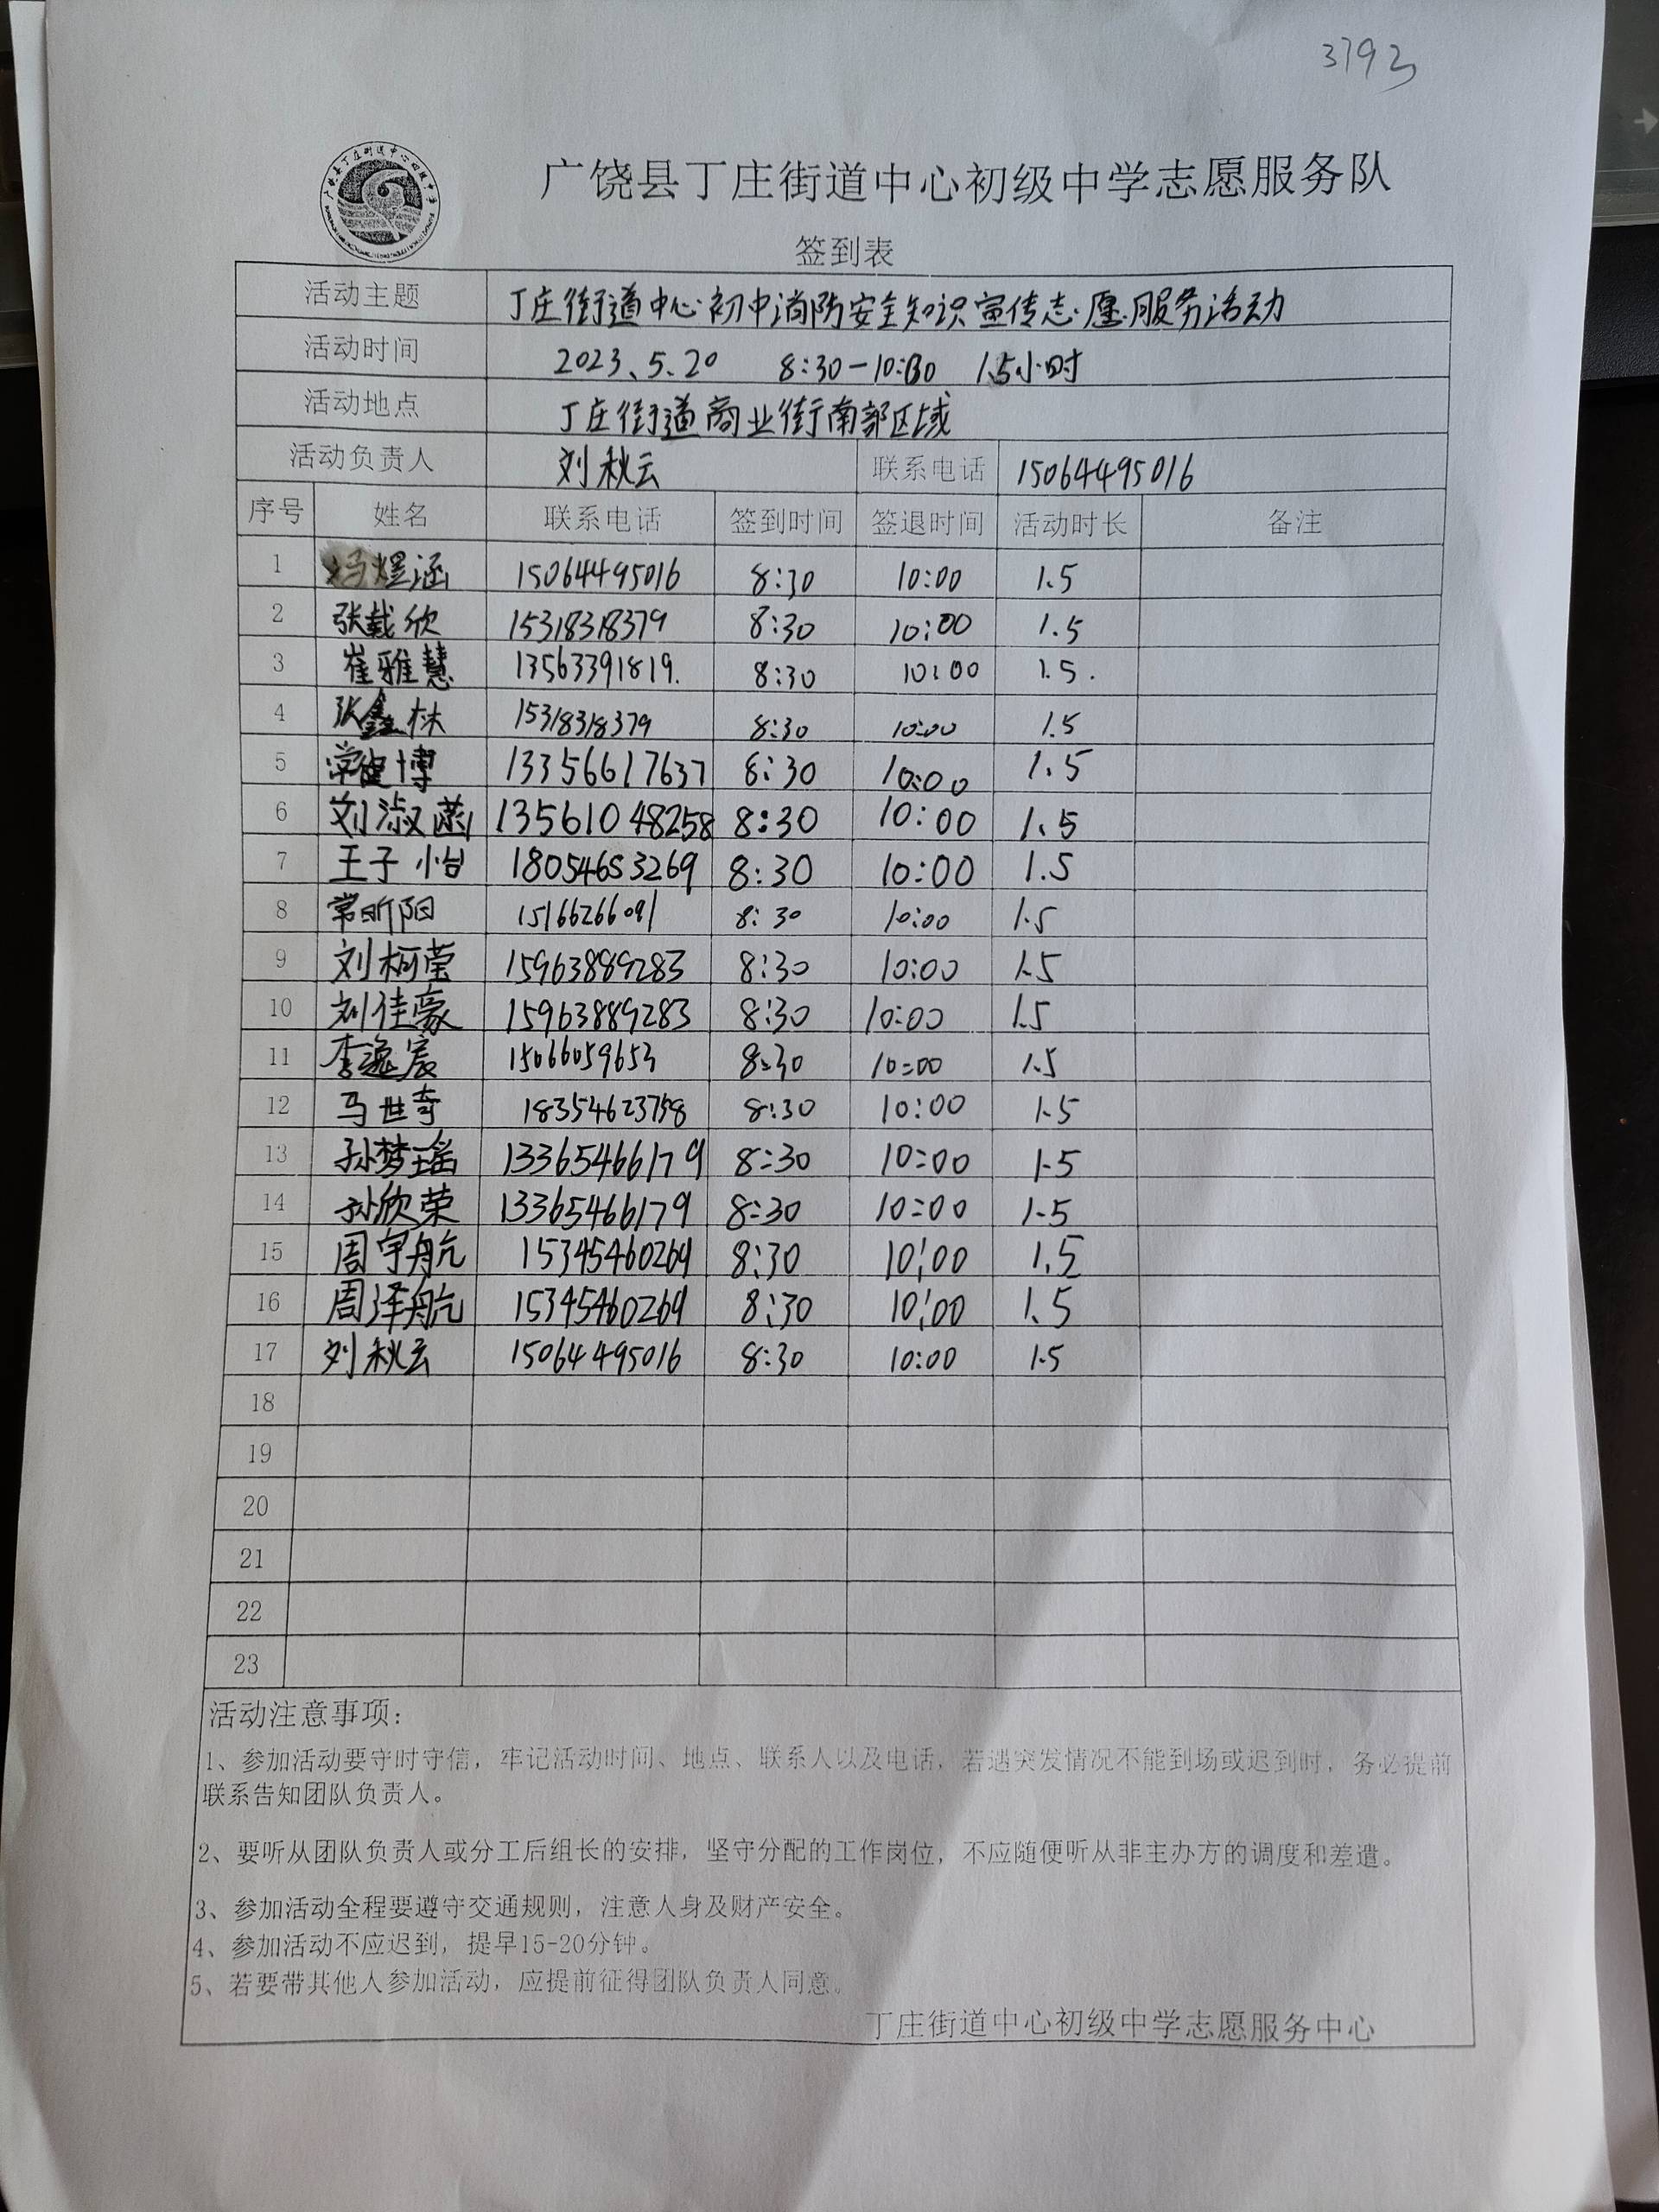 3793
广饶县丁庄街道中心初级中学
广饶县丁庄街道中心初级中学志愿服务队
签到表
活动主题 丁庄街道中心初中消防安全知识宣传志愿服务活动
活动时间 2023.5.20 8:30-10:00 1.5小时
活动地点 丁庄街道商业街南部区域
活动负责人 刘秋云 联系电话 15064495016
序号 姓名 联系电话 签到时间 签退时间 活动时长 备注
1 冯煜涵 15064495016 8:30 10:00 1.5
2 张栽欣 15318318379 8:30 10:00 1.5
3 崔雅慧 13563391819. 8:30 10:00 1.5.
4 张鑫林 15318318379 8:30 10:00 1.5
5 常健博 13356617637 8:30 10:00 1.5
6 刘淑菡 13561048258 8:30 10:00 1.5
7 王子怡 18054653269 8:30 10:00 1.5
8 常昕阳 15166266091 8:30 10:00 1.5
9 刘柯莹 15963889283 8:30 10:00 1.5
10 刘佳豪 15963889283 8:30 10:00 1.5
11 李逸宸 15066059653 8:30 10:00 1.5
12 马世奇 18354623758 8:30 10:00 1.5
13 孙梦瑶 13365466179 8:30 10:00 1.5
14 孙欣荣 13365466179 8:30 10:00 1.5
15 周宇航 15345460269 8:30 10:00 1.5
16 周泽航 15345460269 8:30 10:00 1.5
17 刘秋云 15064495016 8:30 10:00 1.5
18
19
20
21
22
23
活动注意事项:
1、参加活动要守时守信，牢记活动时间、地点、联系人以及电话，若遇突发情况不能到场或迟到时，务必提前
联系告知团队负责人。
2、要听从团队负责人或分工后组长的安排，坚守分配的工作岗位，不应随便听从非主办方的调度和差遣。
3、参加活动全程要遵守交通规则，注意人身及财产安全。
4、参加活动不应迟到，提早15-20分钟。
5、若要带其他人参加活动，应提前征得团队负责人同意。
丁庄街道中心初级中学志愿服务中心